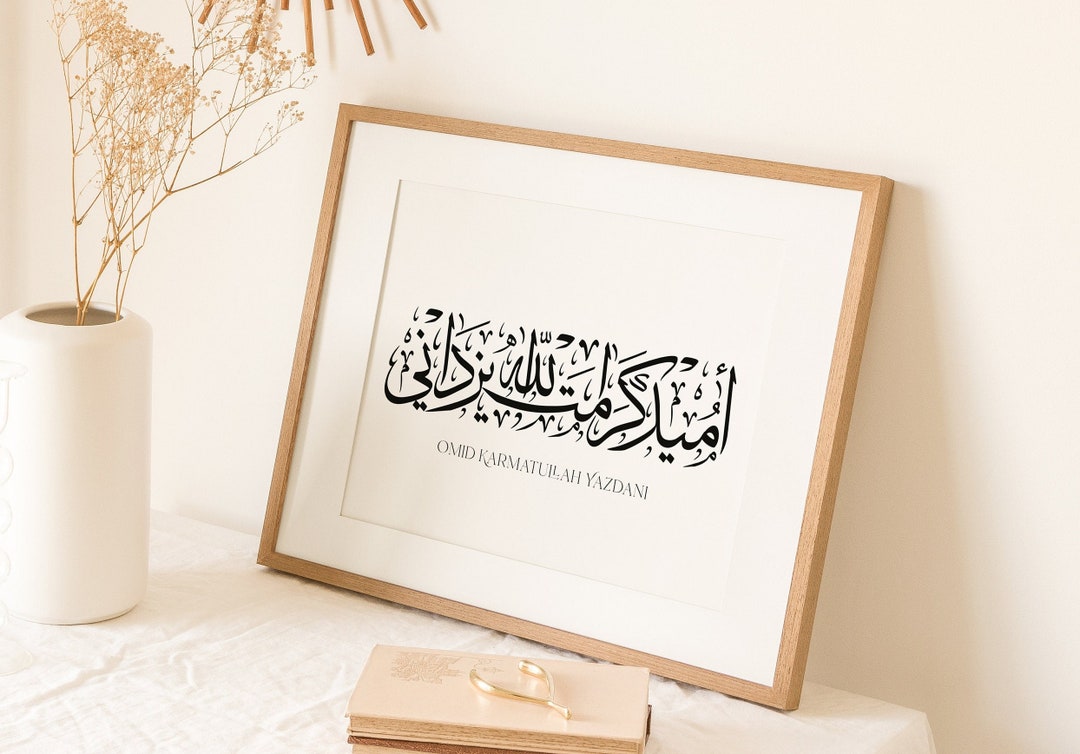 أميد كرامت الله يزداني
OMID KARMATULLAH YAZDANI